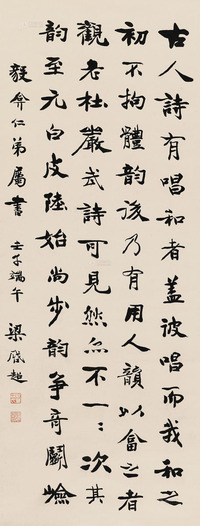 古人詩有唱和者蓋彼唱而我和之
初不拘體韻後乃有用人韻以畣之者
觀老杜嚴武詩可見然亦不一〻次其
韻至元白皮陸始尚步韻爭奇鬭險
毅弇仁弟屬書 壬子端午 梁啓超